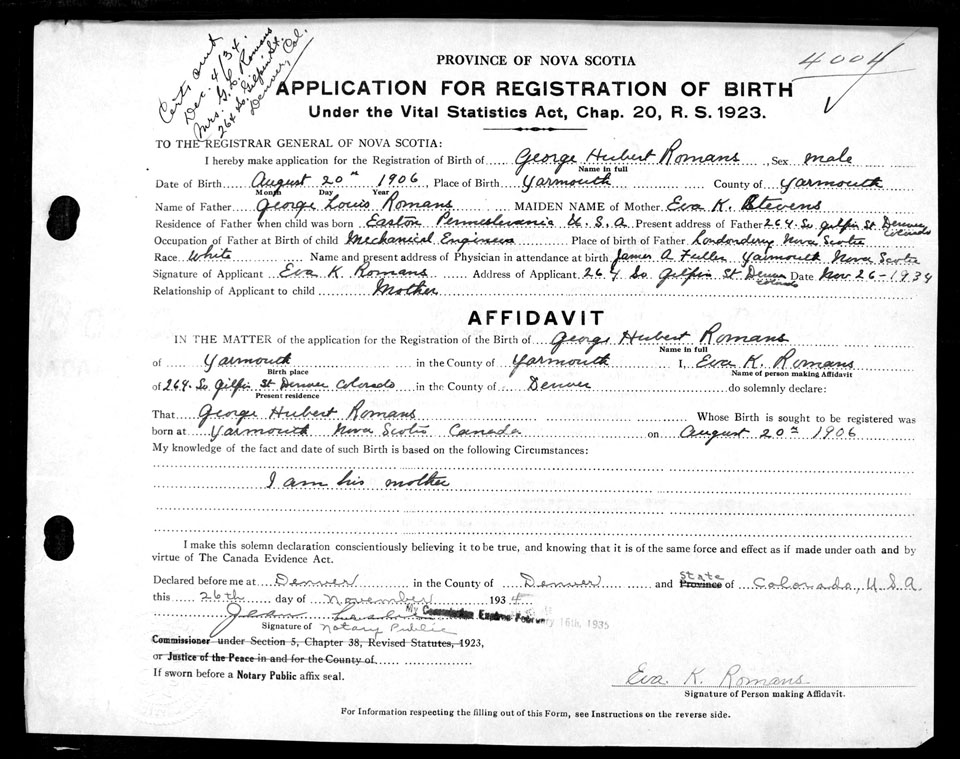 Certs out
Dec. 4/34.
Mrs. G. L. Romans
264 So. Gilpin St.
Denver, Col.
4004
PROVINCE OF NOVA SCOTIA
APPLICATION FOR REGISTRATION OF BIRTH
Under the Vital Statistics Act, Chap. 20, R. S. 1923.
TO THE REGISTRAR GENERAL OF NOVA SCOTIA:
I hereby make application for the Registration of Birth of George Hubert Romans, Sex male
Name in full
Date of Birth August 20th 1906, Place of Birth Yarmouth County of Yarmouth
Month Day Year
Name of Father George Louis Romans MAIDEN NAME of Mother Eva K. Stevens
Residence of Father when child was born Easton Pennsylvania U. S. A Present address of Father 264 So. Gilpin St Denver Colorado
Occupation of Father at Birth of child Mechanical Engineer Place of birth of Father Londonderry Nova Scotia
Race White Name and present address of Physician in attendance at birth James A Fuller Yarmouth Nova Scotia
Signature of Applicant Eva K. Romans Address of Applicant 264 So. Gilpin St Denver Colorado Date Nov 26-1934
Relationship of Applicant to child Mother
AFFIDAVIT
IN THE MATTER of the application for the Registration of the Birth of George Hubert Romans
Name in full
of Yarmouth in the County of Yarmouth I, Eva K. Romans
Birth place Name of person making Affidavit
of 264. So Gilpin St Denver Colorado in the County of Denver do solemnly declare:
Present residence
That George Hubert Romans Whose Birth is sought to be registered was
born at Yarmouth Nova Scotia Canada on August 20th 1906
My knowledge of the fact and date of such Birth is based on the following Circumstances:
I am his mother
I make this solemn declaration conscientiously believing it to be true, and knowing that it is of the same force and effect as if made under oath and by
virtue of The Canada Evidence Act.
Declared before me at Denver in the County of Denver and State Province of Colorado, U.S.A
this 26th day of November 1934
Jean My Commission Expires February 16th, 1935
Signature of Notary Public
Commissioner under Section 5, Chapter 38, Revised Statutes, 1923,
or Justice of the Peace in and for the County of
If sworn before a Notary Public affix seal.
Eva. K. Romans
Signature of Person making Affidavit.
For Information respecting the filling out of this Form, see Instructions on the reverse side.